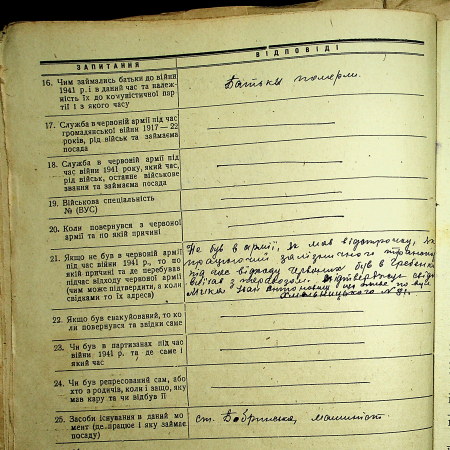 ЗАПИТАННЯ
ВІДПОВІДІ
16. Чим займались батьки до війни
1941 р. і в даний час та належ-
ність їх до комуністичної пар-
тії і з якого часу
Батьки померли.
17. Служба в червоній армії під час
громадянської війни 1917—22
років, рід військ та займаєма
посада
18. Служба в червоній армії під
час війни 1941 року, який час,
рід військ, останнє військове
звання та займаєма посада
19. Військова спеціальність
№ (ВУС)
20. Коли повернувся з червоної
армії та по якій причині
21. Якщо не був в червоній армії
під час війни 1941 р., то по
якій причині та де перебував
підчас відходу червоної армії
(чим може підтвердити, а коли
свідками то їх адреса)
Не був в армії, як мав відстрочку, як
працюючий залізничного транспорту
під час відходу червоних був в
22. Якщо був евакуйований, то ко-
ли повернувся та звідки саме
23. Чи був в партизанах під час
війни 1941 р. та де саме і
який час
24. Чи був репресований сам, або
хто з родичів, коли і защо, яку
мав кару та чи відбув її
25. Засоби існування в даний мо-
мент (де працює і яку займає
посаду)
ст. Бобринська, машиніст